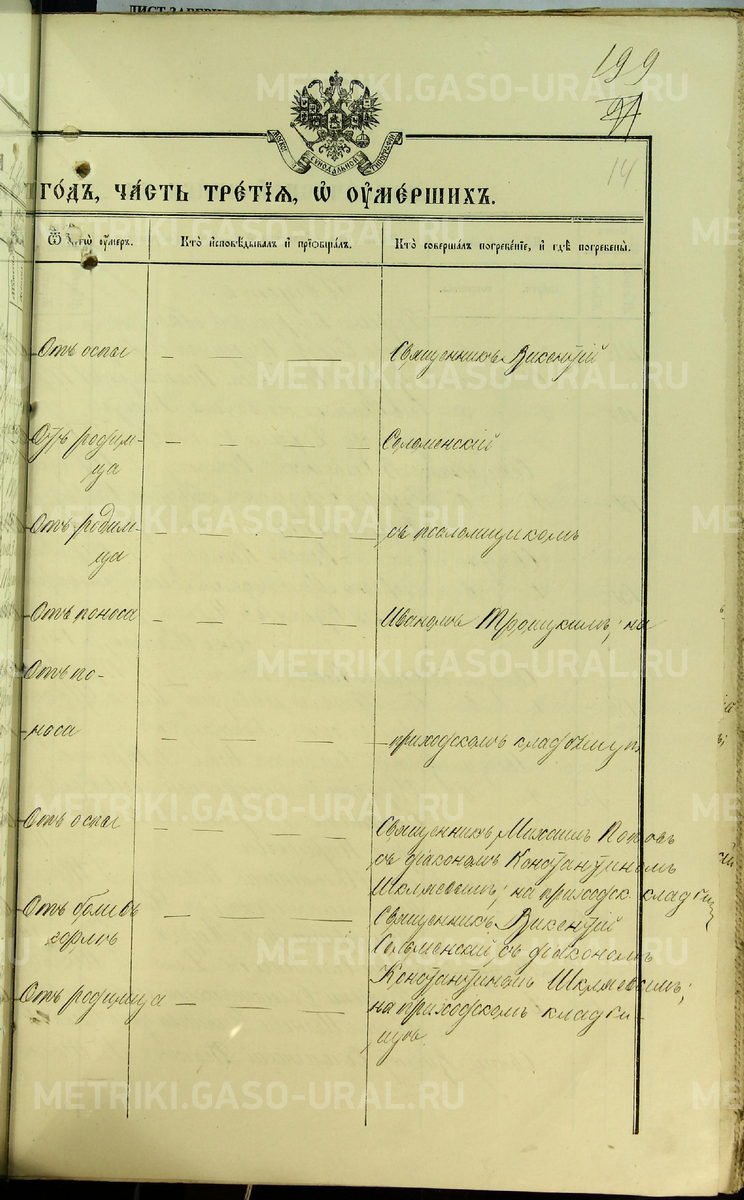 ЛИСТ ЗАВЕРИ
199
14
МОСКО
СѴНОДАЛЬНОЙ
ТИПОГРАФІИ
ГО́ДЪ, ЧА́СТЬ ТРЕ́ТІѦ, Ѡ҆ ОУ҆МЕ́РШИХЪ.
Ѿ чегѡ̀ оу҆́меръ.
Кто̀ и҆сповѣ́дывалъ и҆ прїѡбща́лъ.
Кто̀ соверша́лъ погребе́нїе, и҆ гдѣ̀ погребены̀.
Отъ оспы
Священникъ Викентій
Отъ родим-
ца
Соломенскій
Отъ родим-
ца
съ псаломщикомъ
Отъ поноса
Иваномъ Троицкимъ; на
Отъ по-
носа
приходскомъ кладбищѣ
Отъ оспы
Священникъ Михаилъ Поповъ
съ діакономъ Константиномъ
Шклмевымъ; на приходск. кладбищѣ
Отъ боли въ
горлѣ
Священникъ Викентій
Соломенскій съ діакономъ
Отъ родимца
Константиномъ
на приходскомъ кладби-
щѣ.
METRIKI.GASO-URAL.RU